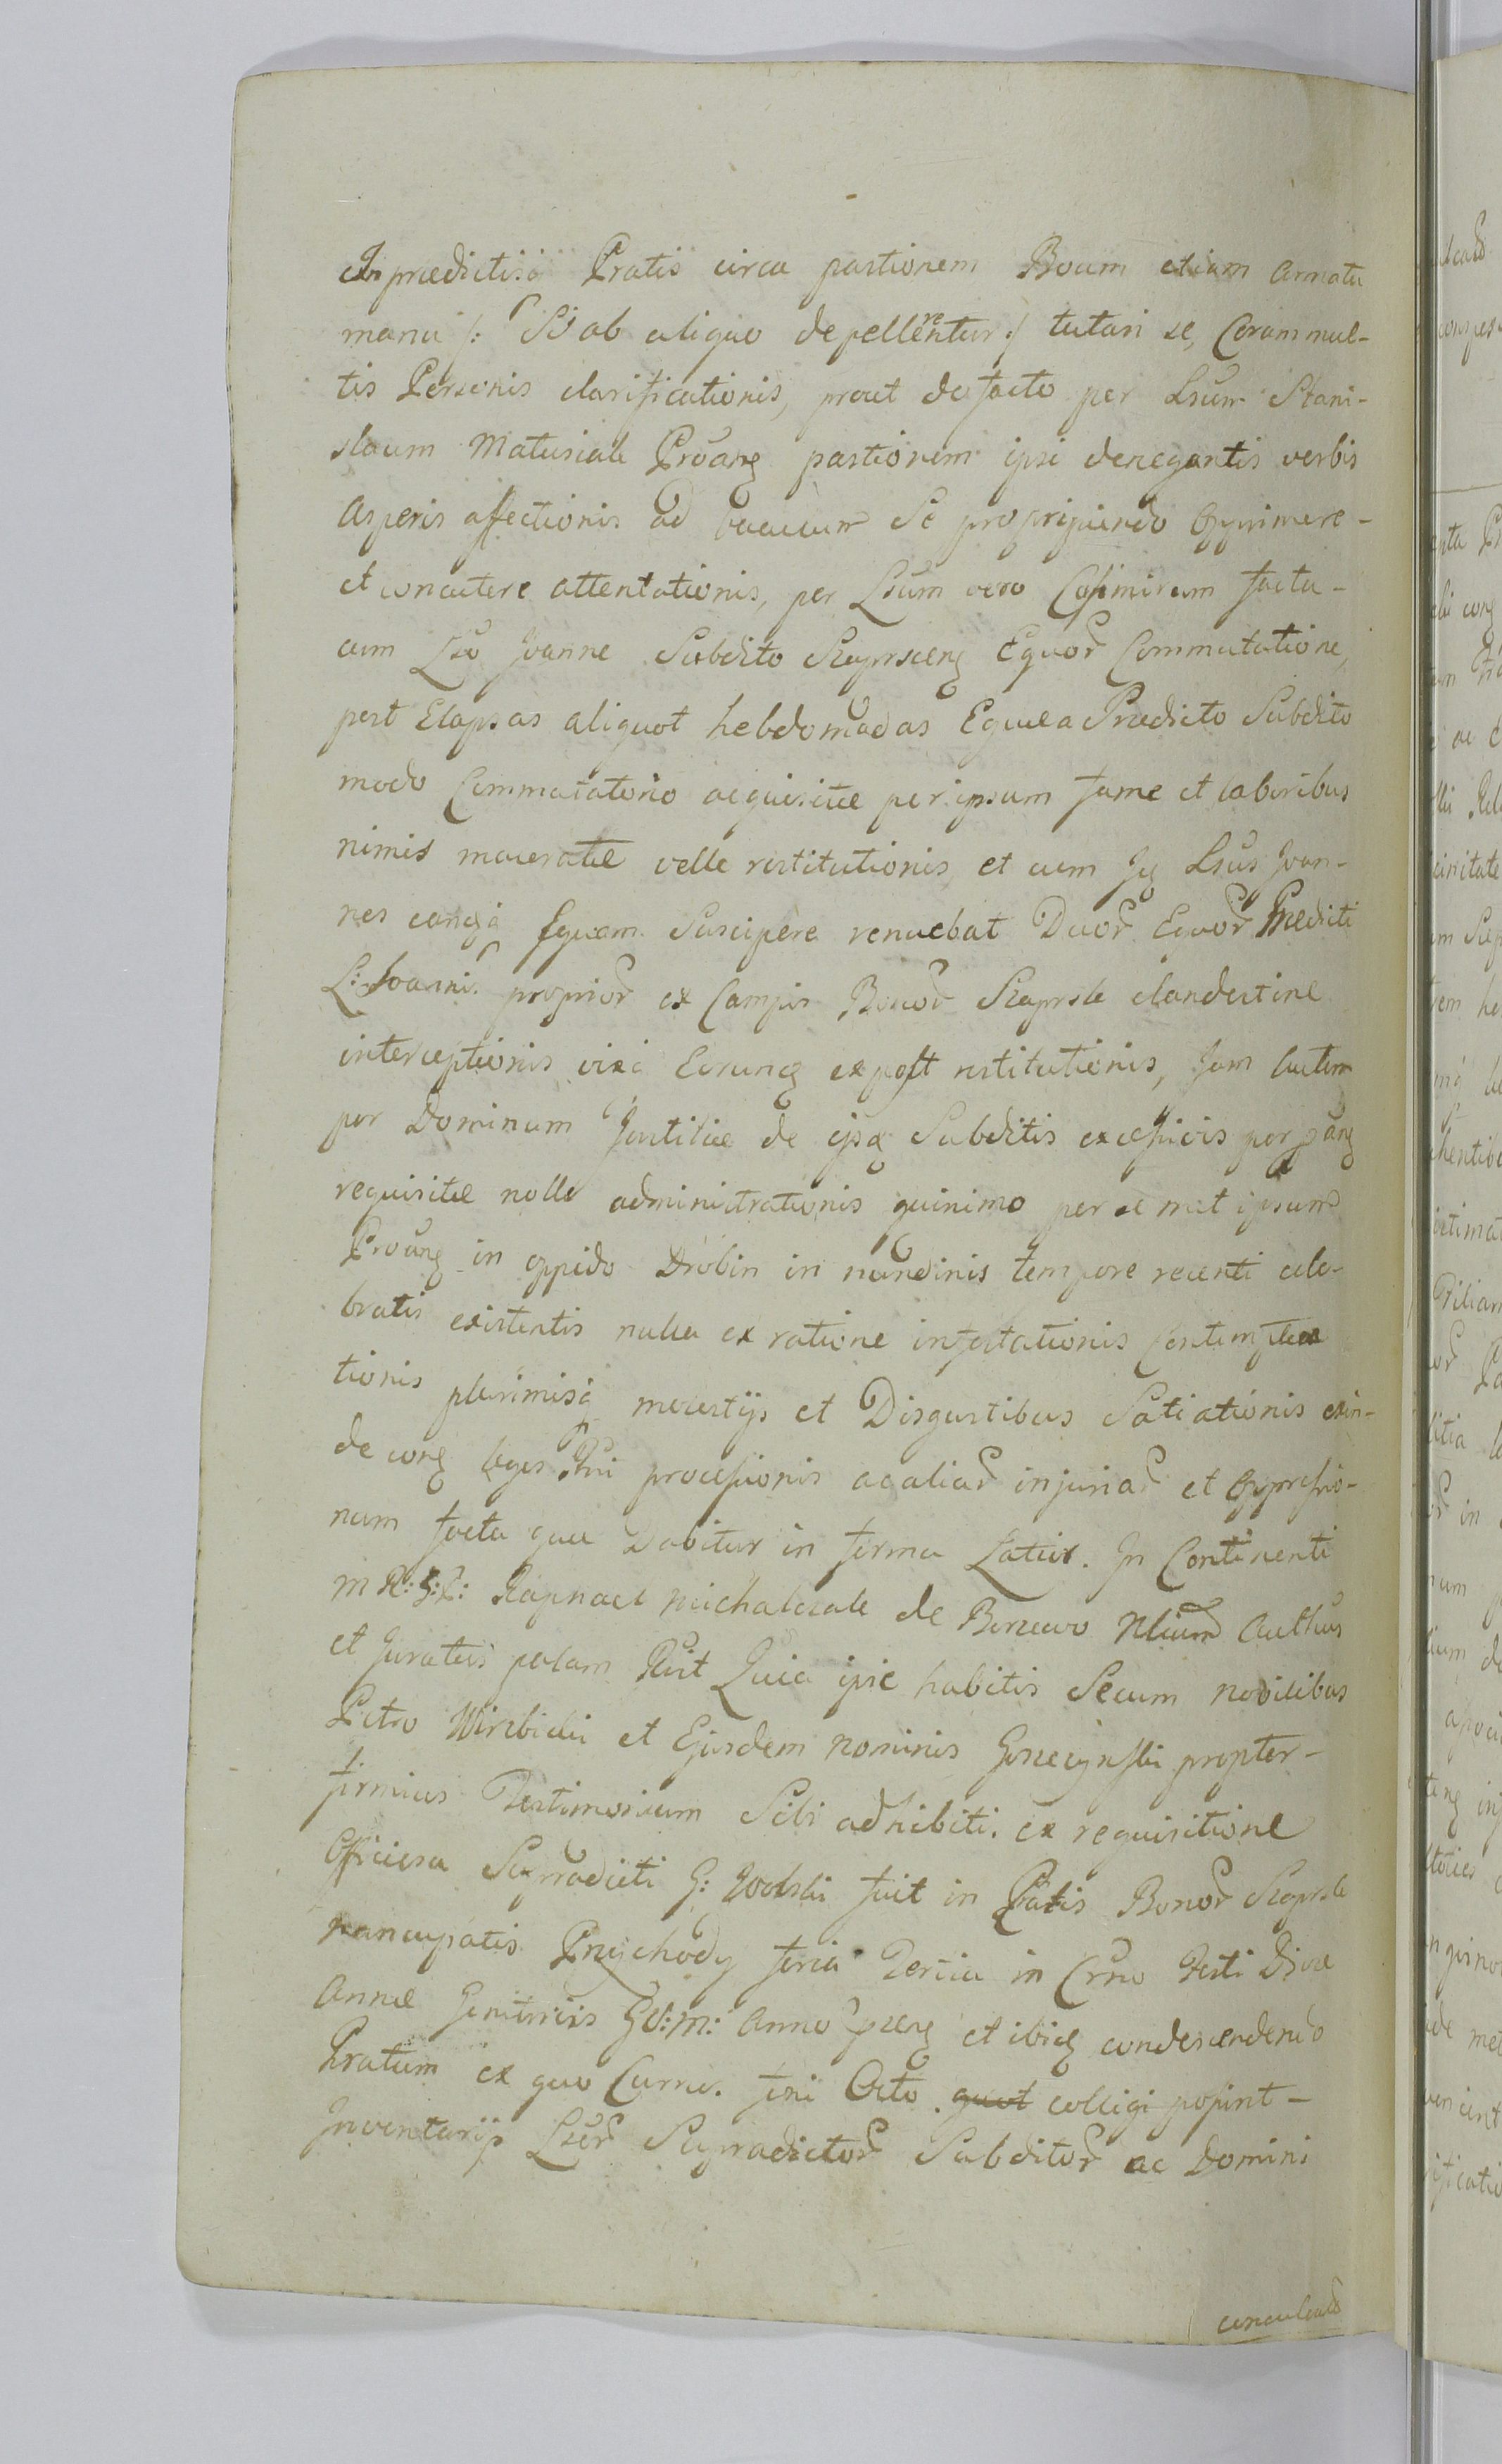 In prædictis Pratis circa pastionem Boum etiam armata
manu /: Si ab aliquo depellerentur :/ tutari se, Coram mul-
tis Personis clarificationis, prout de facto per Lsum Stani-
slaum Matusiak pastionem ipsi denegantis verbis
asperis affectionis ad baculum Se proripiendo Opprimere -
et concutere attentationis, per Lsum vero Casimirum facta -
cum Lso Joanne Subdito Equor Commutatione,
post Elapsas aliquot hebdomadas Equæ a Prædicto Subdito
modo Commutatorio acquisitæ per ipsum fame et laboribus
nimis maceratæ velle restitutionis, et cum Lsus Joan-
nes eamq Equam Suscipere renuebat Duor Equor Prædicti
L: Joannis proprior ex Campis Bonor clandestine
interceptionis, vixq Eorung expost restitutionis, Jam autem
per Dominum Justitiæ de ipsis Subditis excessivis per
requisitæ nolle administrationis quinimo per se met ipsum
in oppido Drobin in nundinis tempore recenti cele-
bratis existentis nulla ex ratione infestationis
tionis plurimisq molestijs et Disgustibus Satiationis exin-
de leges processionis ac aliar injuriar et Oppressio-
num facta quæ Dabitur in forma Latiori. In Continenti
M R: Raphael Michalczak de Authus
et Juratus palam Quia ipse habitis Secum nobilibus
Petro Wirzbicki et Ejusdem nominis propter -
firmius Testimonium Sibi adhibitis ex requisitione
Officiosa Supradicti G: Wolski fuit in Pratis Bonor
nuncupatis Przychody feria Tertia in Crno Festi Divæ
Annæ Genitricis Anno et ibiq condescendendo
Pratum ex quo Curr. feni Octo quot colligi possint -
Inventarijs Supradictor Subditor ac Domini
conculcand